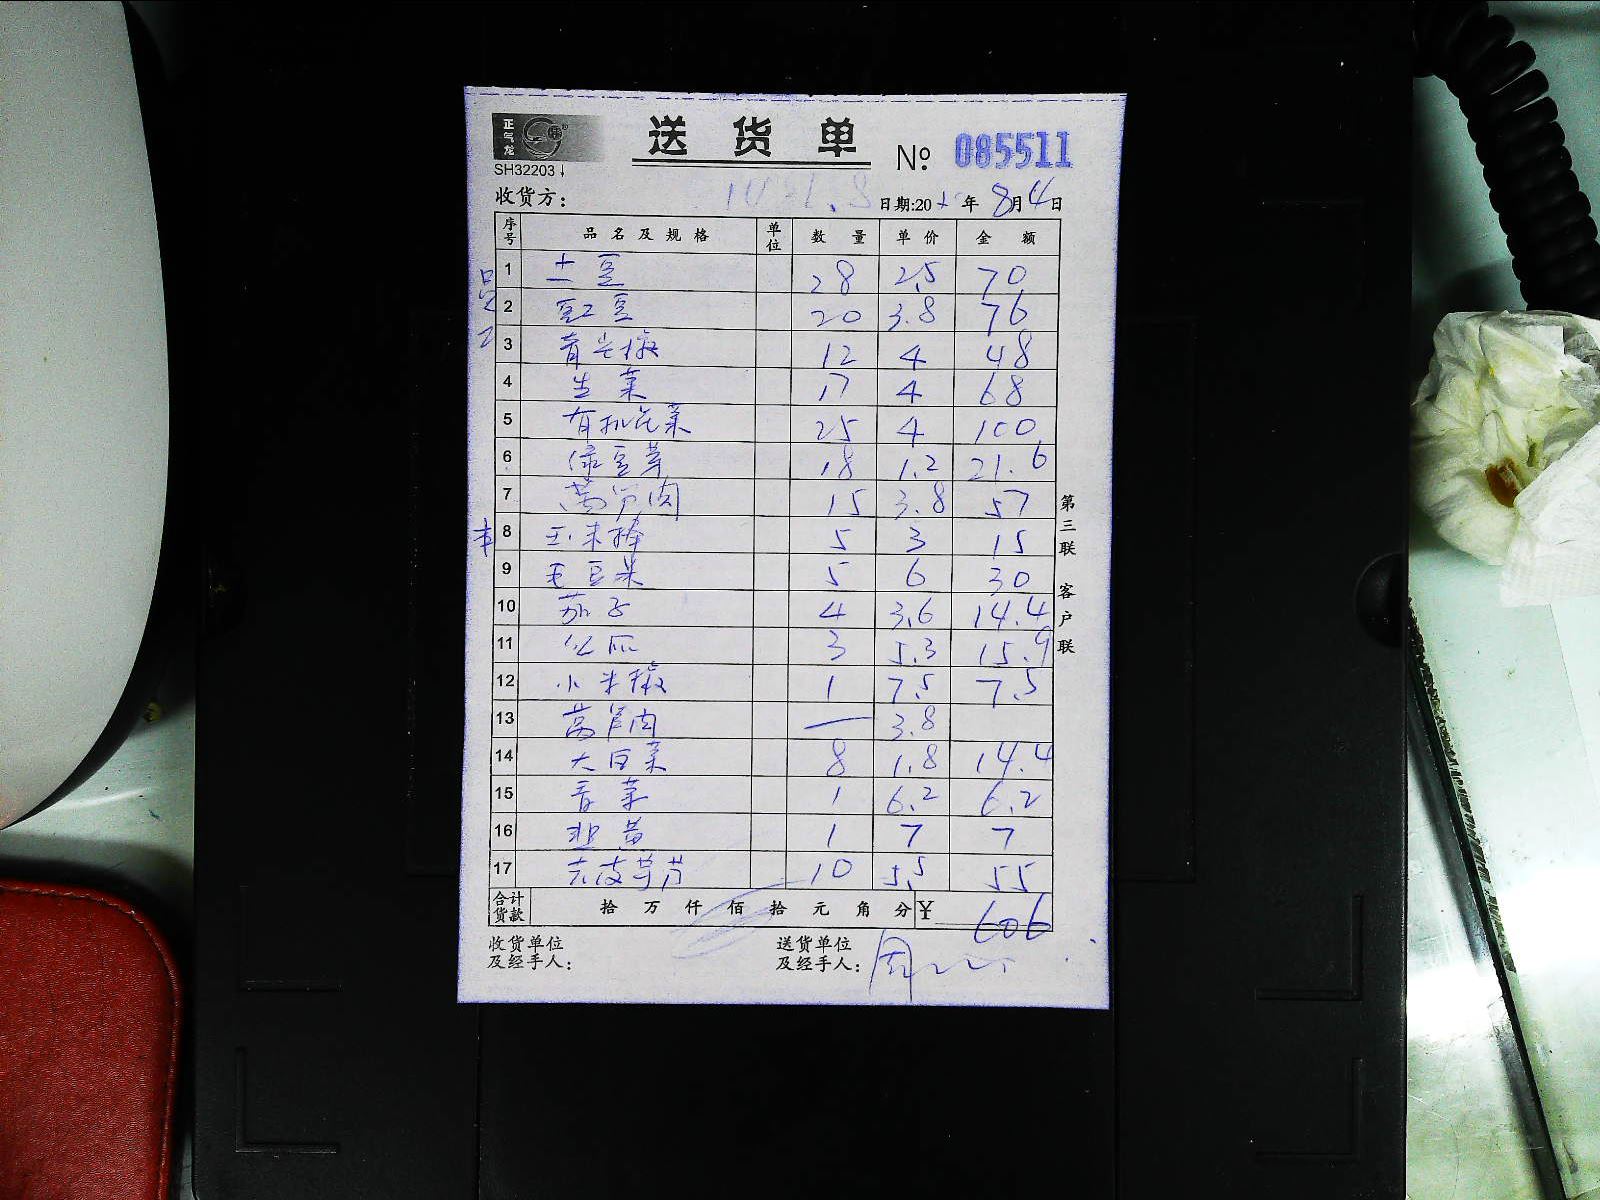 正气龙
送货单
SH32203
№ 085511
收货方: 日期:20 年 8月4日
序号 品名及规格 单位 数量 单价 金额
1 土豆 28 2.5 70
2 豇豆 20 3.8 76
3 青尖椒 12 4 48
4 生菜 17 4 68
5 有机花菜 25 4 100
6 绿豆芽 18 1.2 21.6
7 莴笋肉 15 3.8 57
8 玉米棒 5 3 15
9 毛豆米 5 6 30
10 茄子 4 3.6 14.4
11 3 5.3 15.9
12 小米椒 1 7.5 7.5
13 莴笋肉 — 3.8
14 大白菜 8 1.8 14.4
15 青菜 1 6.2 6.2
16 韭黄 1 7 7
17 去皮 10 5.5 55
合计货款 拾万仟佰拾元角分 ¥ 606
收货单位及经手人:
送货单位及经手人: 周
第三联 客户联